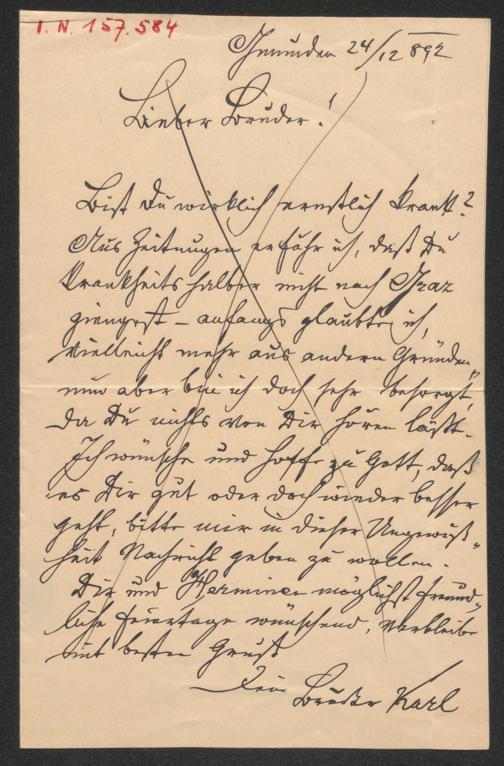 I. N. 157.584
Gmunden 24/12 892
Lieber Bruder!
Bist Du wirklich ernstlich krank?
Aus Zeitungen erfahre ich, daß Du
krankheitshalber nicht nach Graz
giengest – anfangs glaubte ich,
vielleicht mehr aus andern Gründen,
nun aber bin ich doch sehr besorgt,
da Du nichts von Dir hören läßt.
Ich wünsche und hoffe zu Gott, daß
es Dir gut oder doch wieder besser
geht, bitte mir in dieser Ungewiß-
heit Nachricht geben zu wollen.
Dir und Hermine möglichst freund-
liche Feiertage wünschend, verbleibe
mit besten Gruß
Dein Bruder Karl